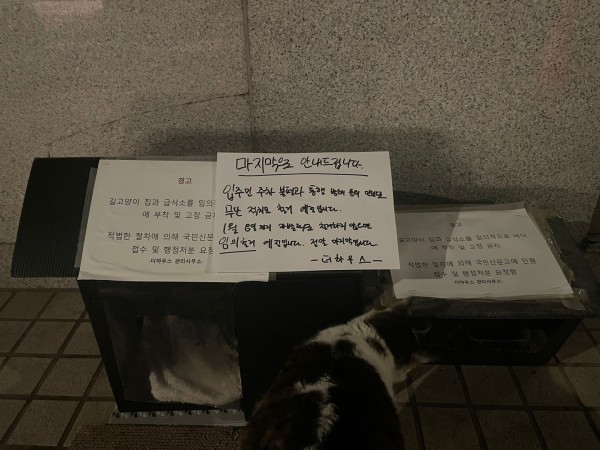 마지막으로 안내드립니다.
입주민 주차 불편과 통행 방해 등의 민원으로
무단 적치로 철거 예정입니다.
1월 6일까지 자발적으로 철거하지 않으면
임의 철거 예정입니다. 정말 마지막입니다
- 더하우스 -
경고
길고양이 집과 급식소를 임의
에 부착 및 고정 금지
적법한 절차에 의해 국민신문
접수 및 행정처분 요청
더하우스 관리사무소
경고
길고양이 집과 급식소를 임의적으로
에 부착 및 고정 금지
적법한 절차에 의해 국민신문고에 민원
접수 및 행정처분 요청함
더하우스 관리사무소